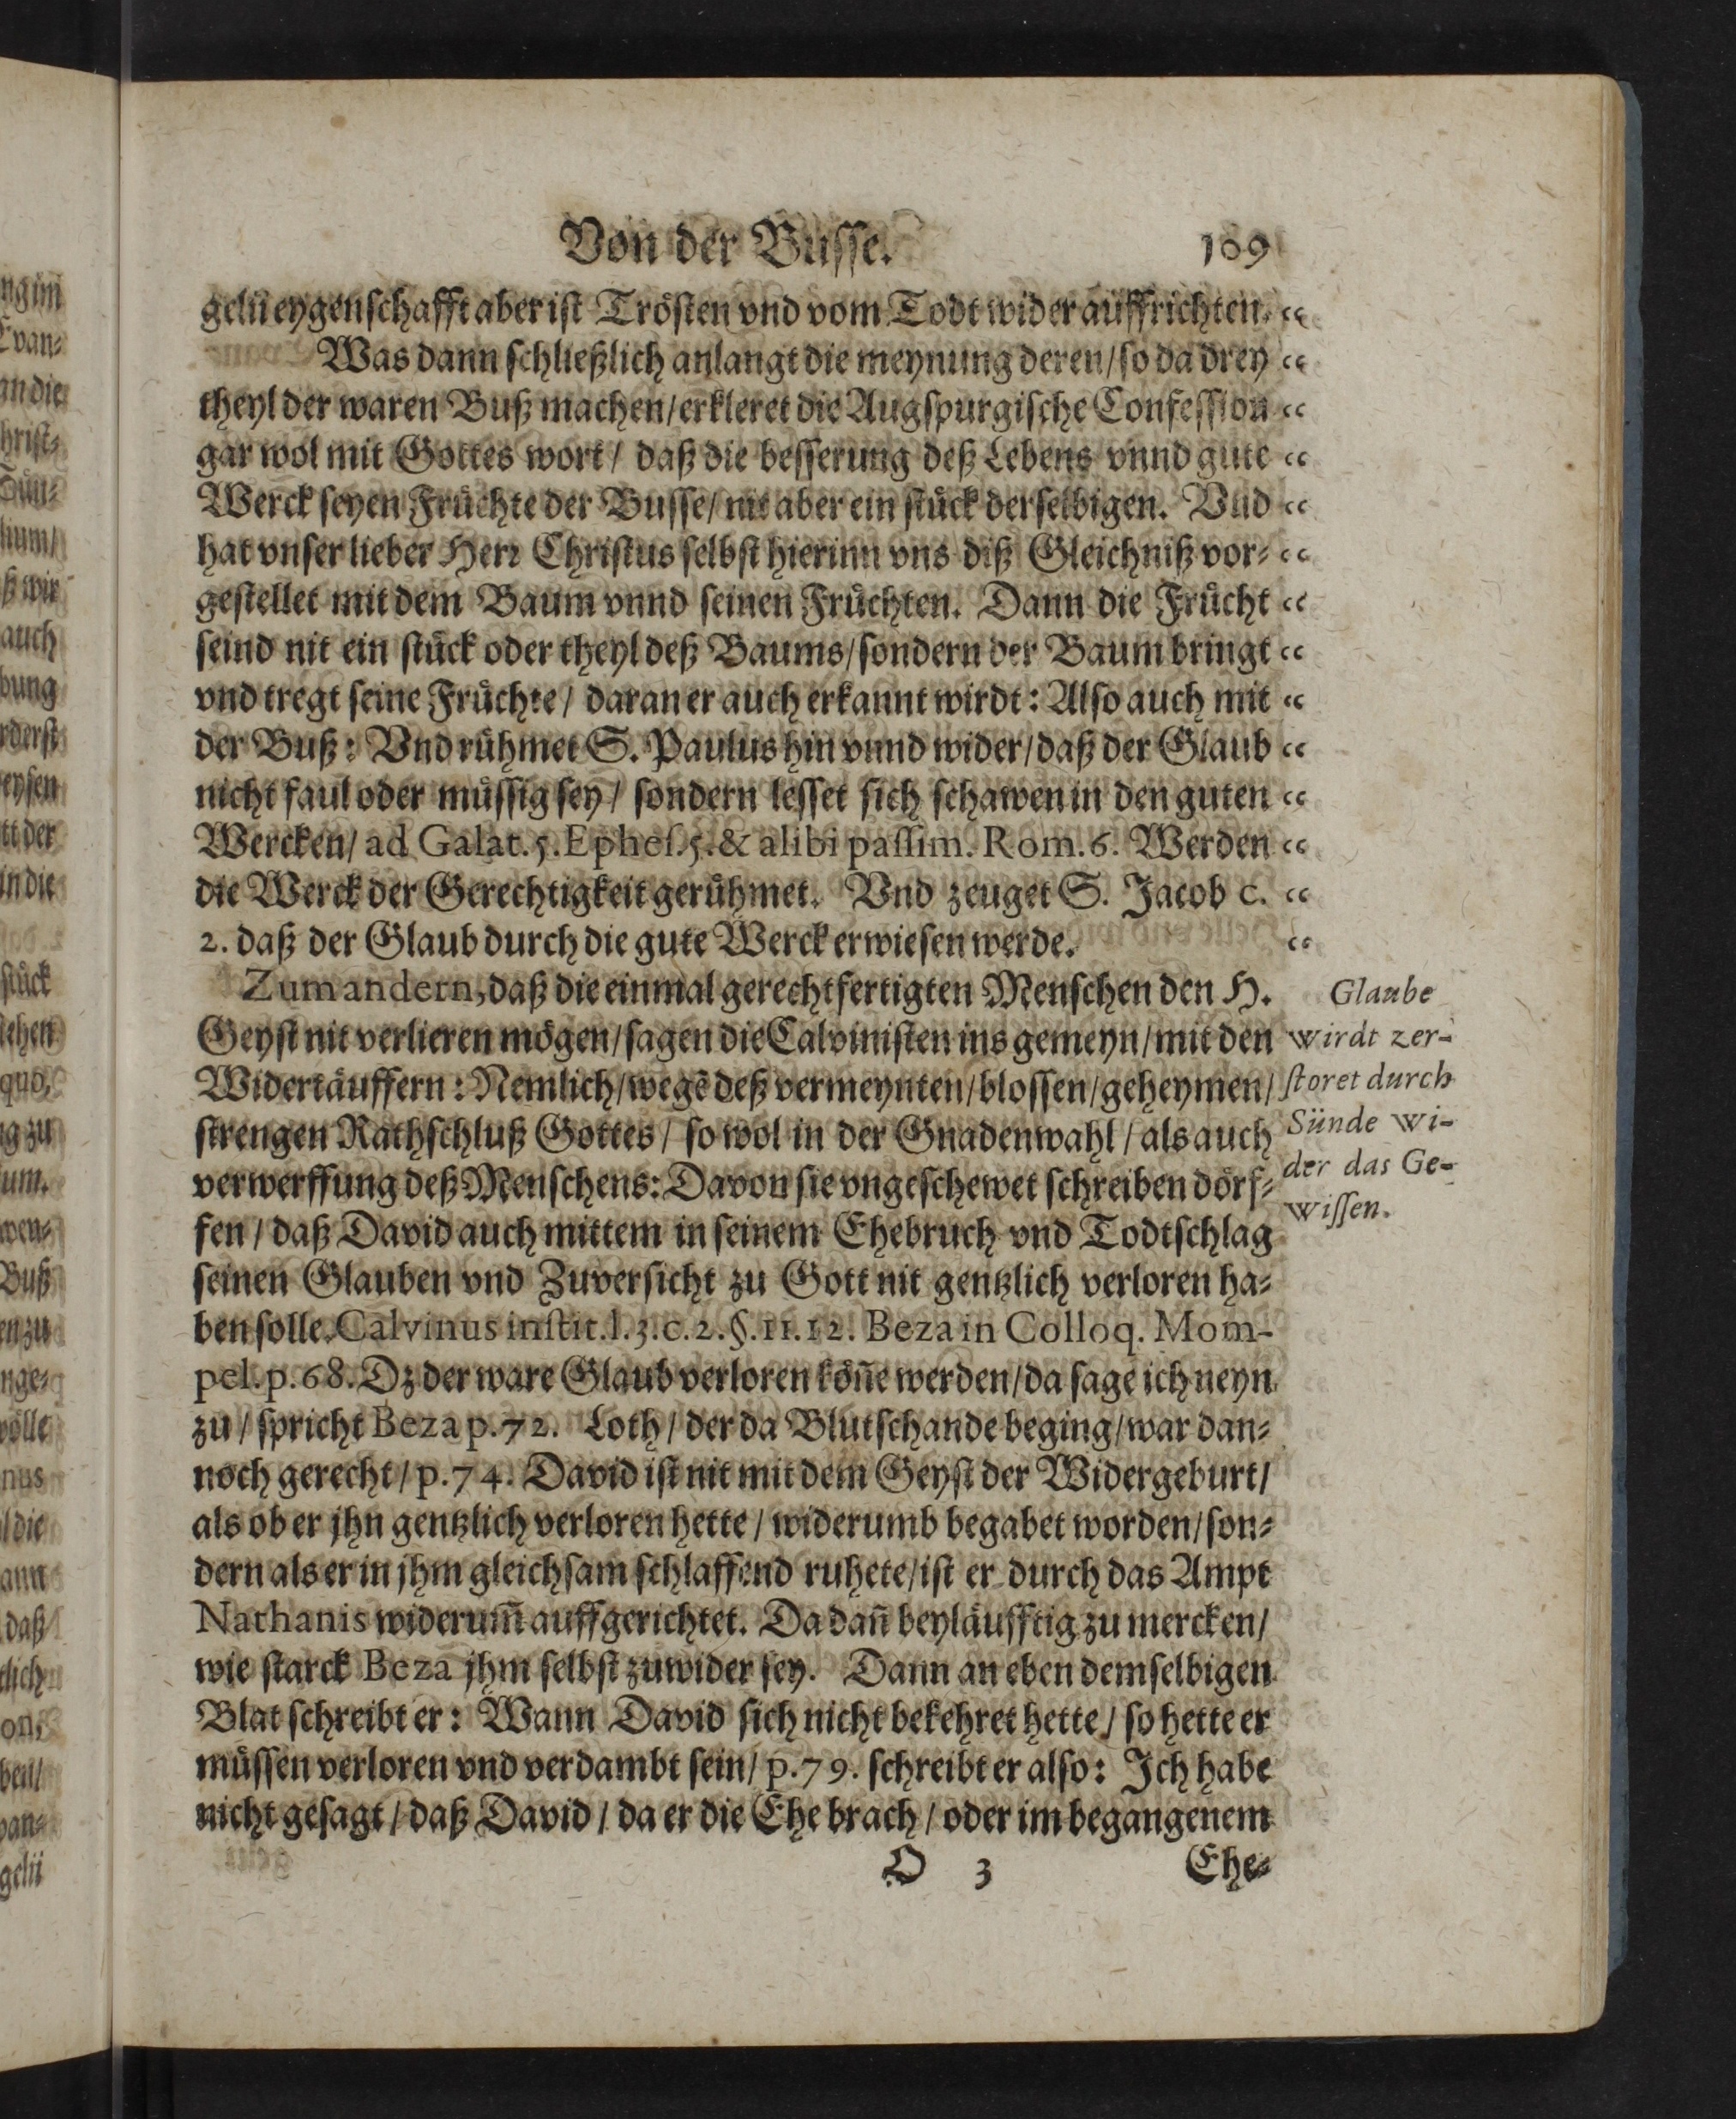 Von der Busse. 109
gelii eygenschafft aber ist Trösten vnd vom Todt wider auffrichten. “
Was dann schließlich anlangt die meynung deren/ so da drey “
theyl der waren Buß machen/ erkleret die Augspurgische Confession “
gar wol mit Gottes wort/ daß die besserung deß Lebens vnnd gute “
Werck seyen Früchte der Busse/ nit aber ein stück derselbigen. Vnd “
hat vnser lieber Herr Christus selbst hierinn vns diß Gleichniß vor- “
gestellet mit dem Baum vnnd seinen Früchten. Dann die Frücht “
seind nit ein stück oder theyl deß Baums/ sondern der Baum bringt “
vnd tregt seine Früchte/ daran er auch erkannt wirdt: Also auch mit “
der Buß: Vnd rühmet S. Paulus hin vnnd wider/ daß der Glaub “
nicht faul oder müssig sey/ sondern lesset sich schawen in den guten “
Wercken/ ad Galat. 5. Ephes. 5. & alibi passim. Rom. 6. Werden “
die Werck der Gerechtigkeit gerühmet. Vnd zeuget S. Jacob c. “
2. daß der Glaub durch die gute Werck erwiesen werde. “
Zum andern, daß die einmal gerechtfertigten Menschen den H.
Geyst nit verlieren mögen/ sagen die Calvinisten ins gemeyn/ mit den
Widertäuffern: Nemlich/ wegē deß vermeynten/ blossen/ geheymen/
strengen Rathschluß Gottes/ so wol in der Gnadenwahl/ als auch
verwerffung deß Menschens: Davon sie vngeschewet schreiben dörf-
fen/ daß David auch mittem in seinem Ehebruch vnd Todtschlag
seinen Glauben vnd Zuversicht zu Gott nit gentzlich verloren ha-
ben solle. Calvinus instit. l. 3. c. 2. §. 11. 12. Beza in Colloq. Mom-
pel. p. 68. Dz der ware Glaub verloren köñe werden/ da sage ich neyn
zu/ spricht Beza p. 72. Loth/ der da Blutschande beging/ war dan-
noch gerecht/ p. 74. David ist nit mit dem Geyst der Widergeburt/
als ob er jhn gentzlich verloren hette/ widerumb begabet worden/ son-
dern als er in jhm gleichsam schlaffend ruhete/ ist er durch das Ampt
Nathanis widerum̃ auffgerichtet. Da dañ beyläufftig zu mercken/
wie starck Beza jhm selbst zuwider sey. Dann an eben demselbigen
Blat schreibt er: Wann David sich nicht bekehret hette/ so hette er
müssen verloren vnd verdambt sein/ p. 79. schreibt er also: Ich habe
nicht gesagt/ daß David/ da er die Ehe brach/ oder im begangenem
O 3 Ehe-
Glaube
wirdt zer-
storet durch
Sünde wi-
der das Ge-
wissen.